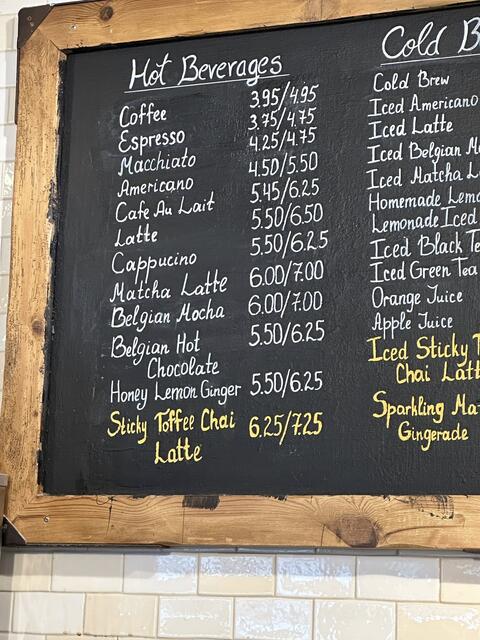 Hot Beverages
Coffee 3.95/4.95
Espresso 3.75/4.75
Macchiato 4.25/4.75
Americano 4.50/5.50
Cafe Au Lait 5.45/6.25
Latte 5.50/6.50
Cappucino 5.50/6.25
Matcha Latte 6.00/7.00
Belgian Mocha 6.00/7.00
Belgian Hot 5.50/6.25
Chocolate
Honey Lemon Ginger 5.50/6.25
Sticky Toffee Chai 6.25/7.25
Latte
Cold
Cold Brew
Iced Americano
Iced Latte
Iced Belgian
Iced Matcha
Homemade
Lemonade Iced
Iced Black
Iced Green Tea
Orange Juice
Apple Juice
Iced Sticky
Chai
Sparkling
Gingerade